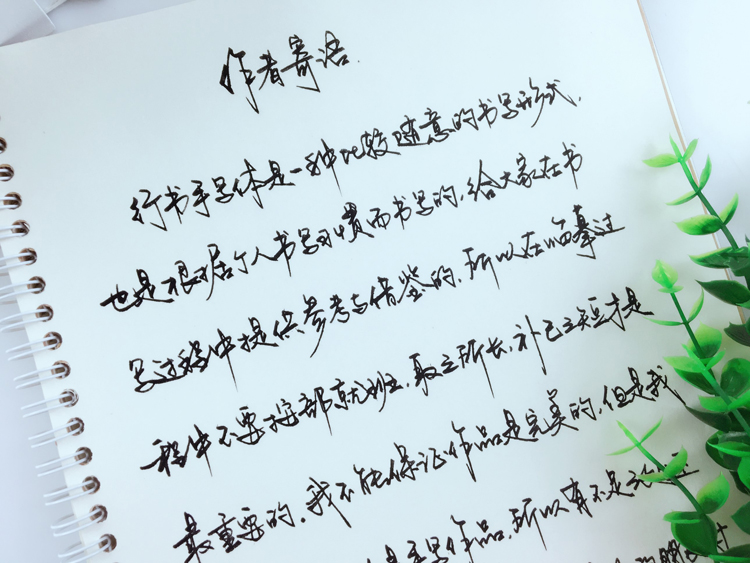 作者寄语
行书手写体是一种比较随意的书写形式,
也是根据个人书写习惯而书写的,给大家在书
写过程中提供参考与借鉴的,所以在临摹过
程中不要按部就班,取之所长,补己之短才是
最重要的,我不能保证作品是完美的,但是我
是手写作品,所以有不足之处